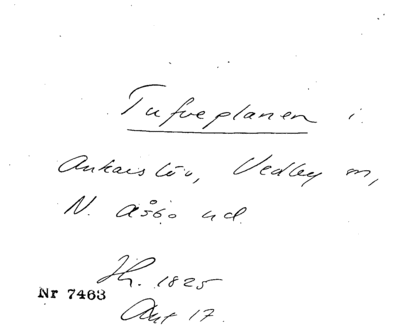 Tufveplanen i
Ankarslöv, Vedby sn,
N. Åsbo hd.
1825
Nr 7463
Akt 17.